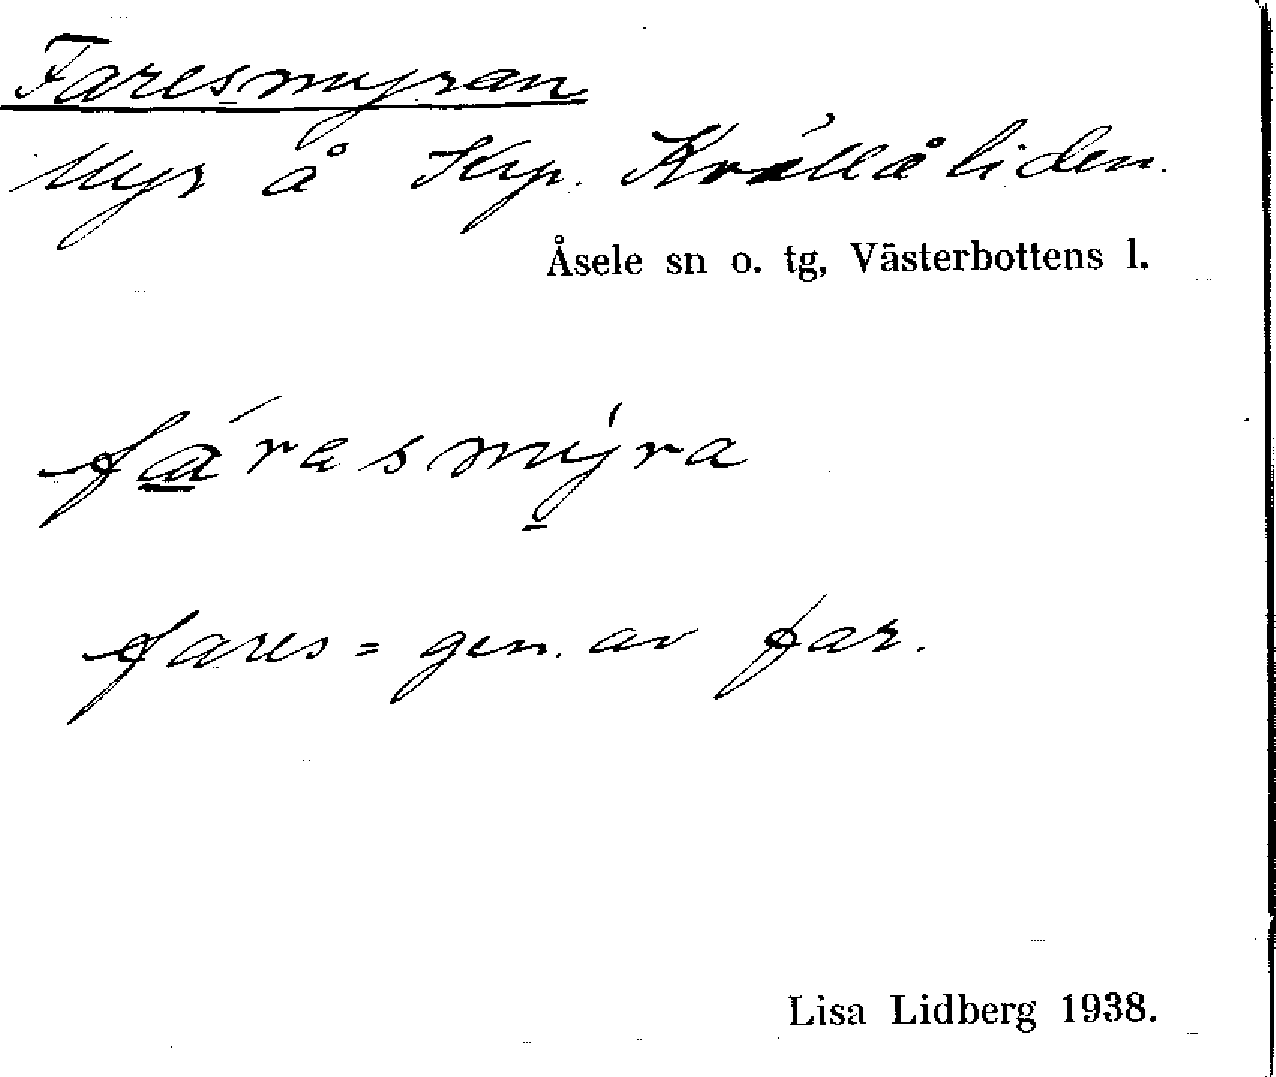 Faresmyran
Myr å Krp. Kvällåliden.
Åsele sn o. tg, Västerbottens l.
fá̱rasmý̱ra
fares = gen. av far.
Lisa Lidberg 1938.